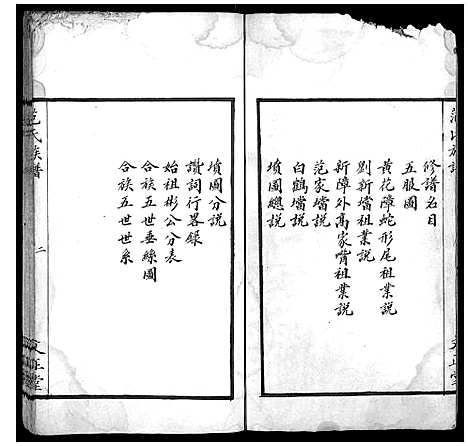 修譜名目
五服圖
黃花障蛇形尾祖業説
劉新壋祖業説
新障外高家背祖業説
范家壋説
白鶴壋説
墳圖總説
墳圖分説
讚詞行畧錄
始祖彬公分表
合族五世垂絲圖
合族五世世系
范氏族譜
二
文正堂